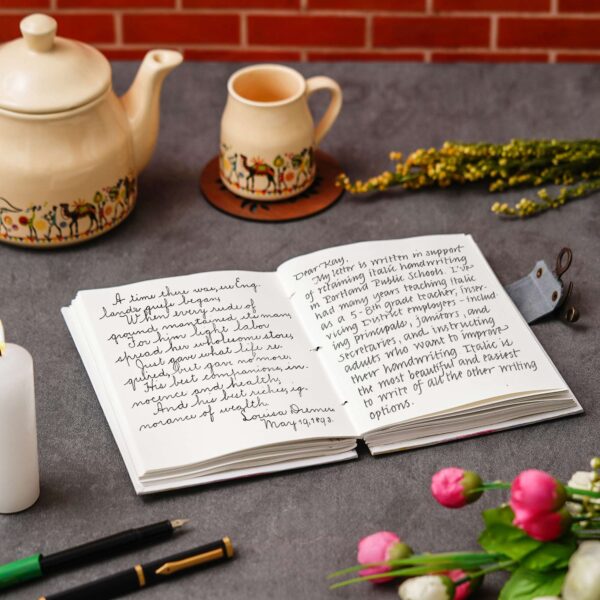 A time there was, ere Eng-
lands griefs began,
When every rude of
ground maintained its man;
For him light labor
spread her wholesome store,
Just gave what life re-
quired, but gave no more.
His best companions, in-
nocence and health,
And his best riches, ig-
norance of wealth.
Louisa Diemer
May 19, 1893.
Dear Kay,
My letter is written in support
of retaining italic handwriting
in Portland Public Schools. I've
had many years teaching italic
as a 5-8th grade teacher, inser-
vicing District employees - includ-
ing principals, janitors, and
secretaries, and instructing
adults who want to improve
their handwriting. Italic is
the most beautiful and easiest
to write of all the other writing
options.